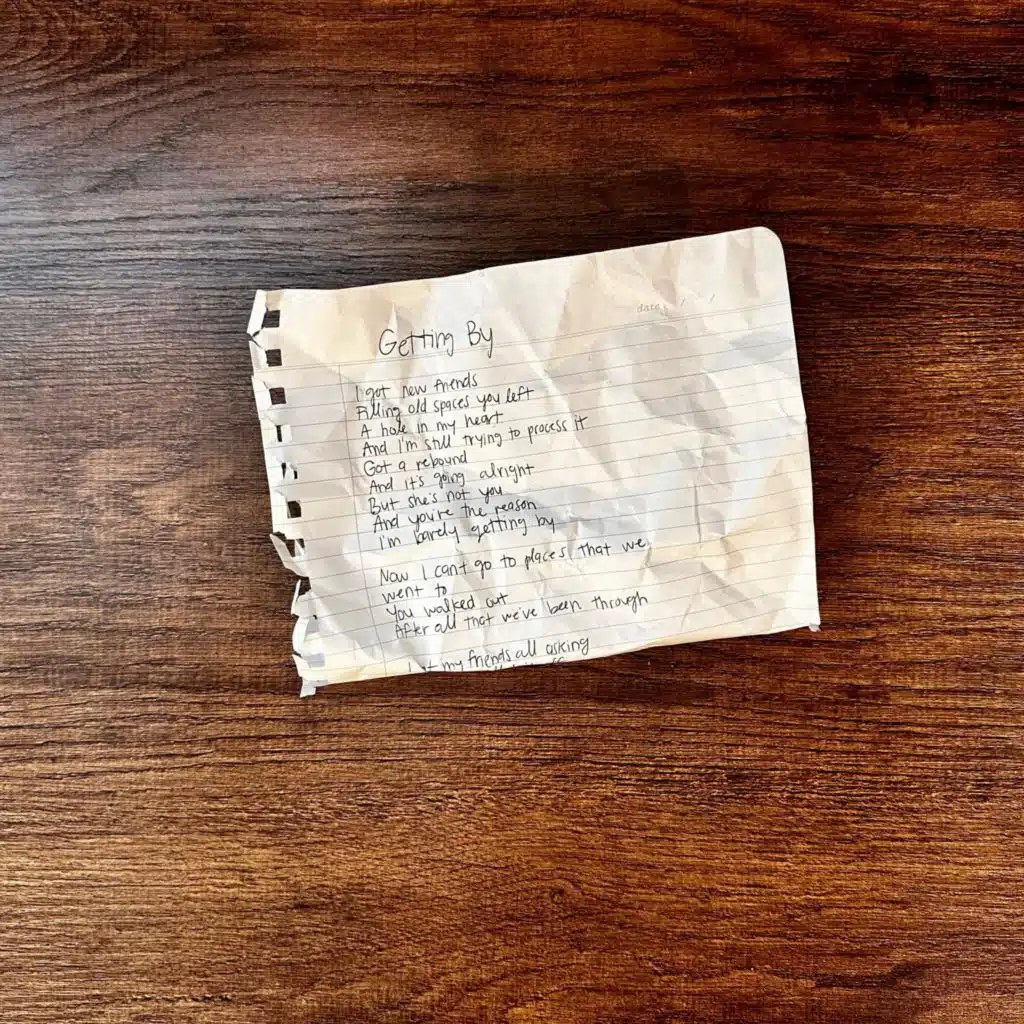 date / /
Getting By
I got new friends
Filling old spaces you left
A hole in my heart
And I'm still trying to process it
Got a rebound
And it's going alright
But she's not you
And you're the reason
I'm barely getting by
Now I can't go to places that we
went to
You walked out
After all that we've been through
my friends all asking